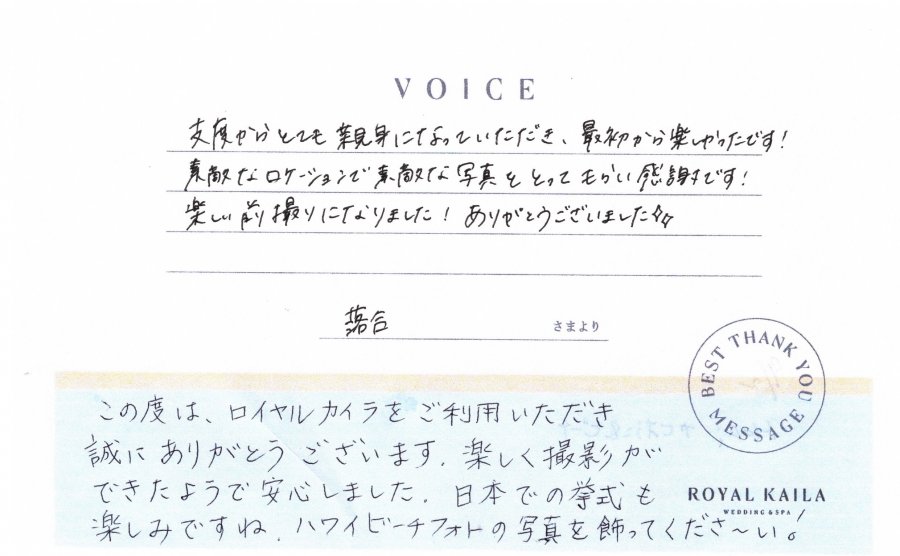 VOICE
支度からとても親身になっていただき、最初から楽しかったです!
素敵なロケーションで素敵な写真をとってもらい感謝です!
楽しい前撮りになりました! ありがとうございました☆☆
落合 さまより
BEST THANK YOU MESSAGE
この度は、ロイヤルカイラをご利用いただき
誠にありがとうございます. 楽しく撮影が
できたようで安心しました. 日本での挙式も
楽しみですね. ハワイビーチフォトの写真を飾ってくださ〜い!
ROYAL KAILA
WEDDING & SPA